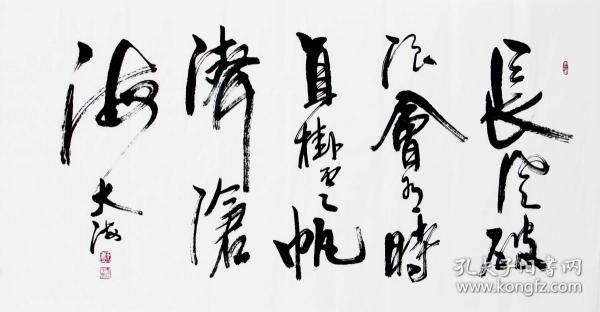 長風破
浪會有時
直掛雲帆
濟滄
海
大海
孔夫子旧书网
www.kongfz.com